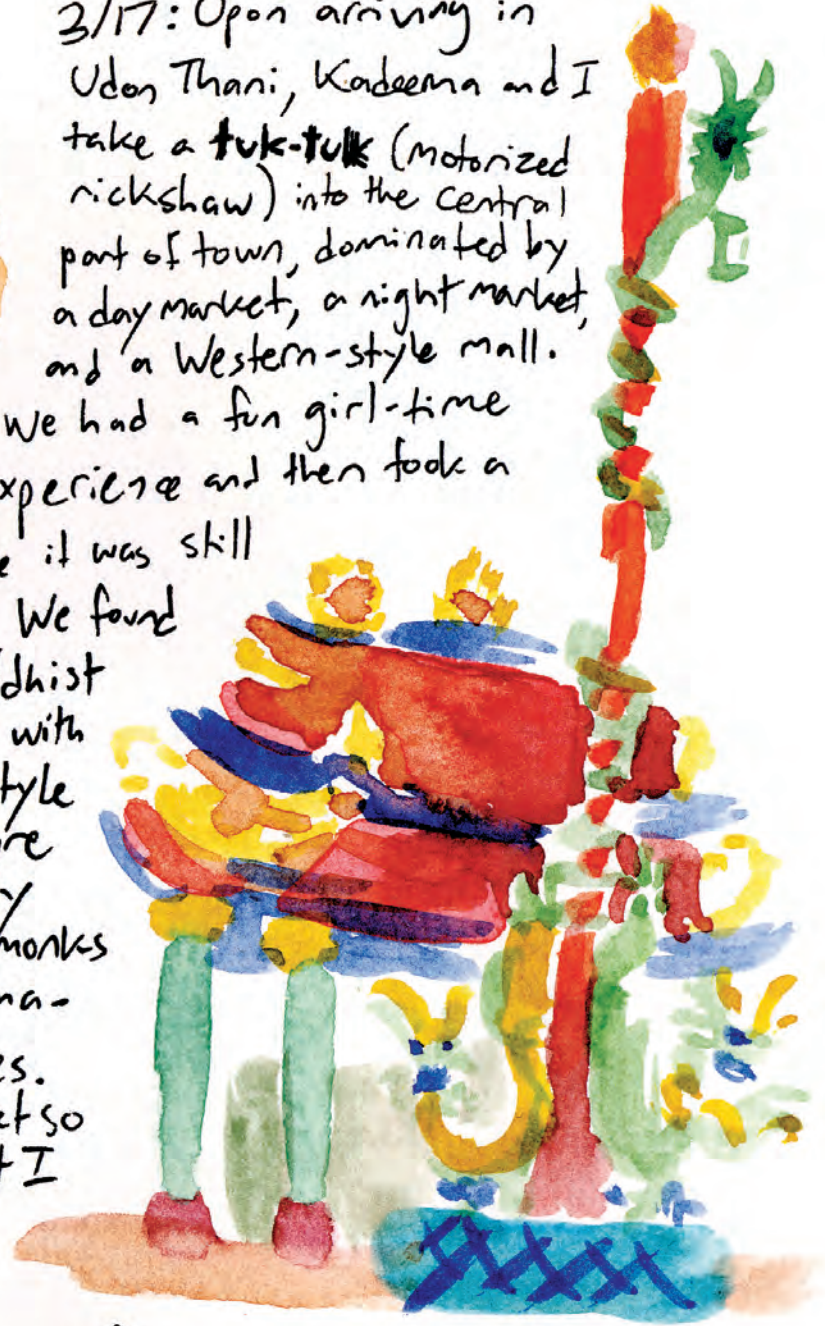 3/17: Upon arriving in
Udon Thani, Kadeema and I
take a tuk-tuk (motorized
rickshaw) into the central
part of town, dominated by
a day market, a night market,
and a Western-style mall.
We had a fun girl-time
xperience and then took a
e it was still
We found
dhist
with
tyle
re
y
monks
na-
es.
et so
t I